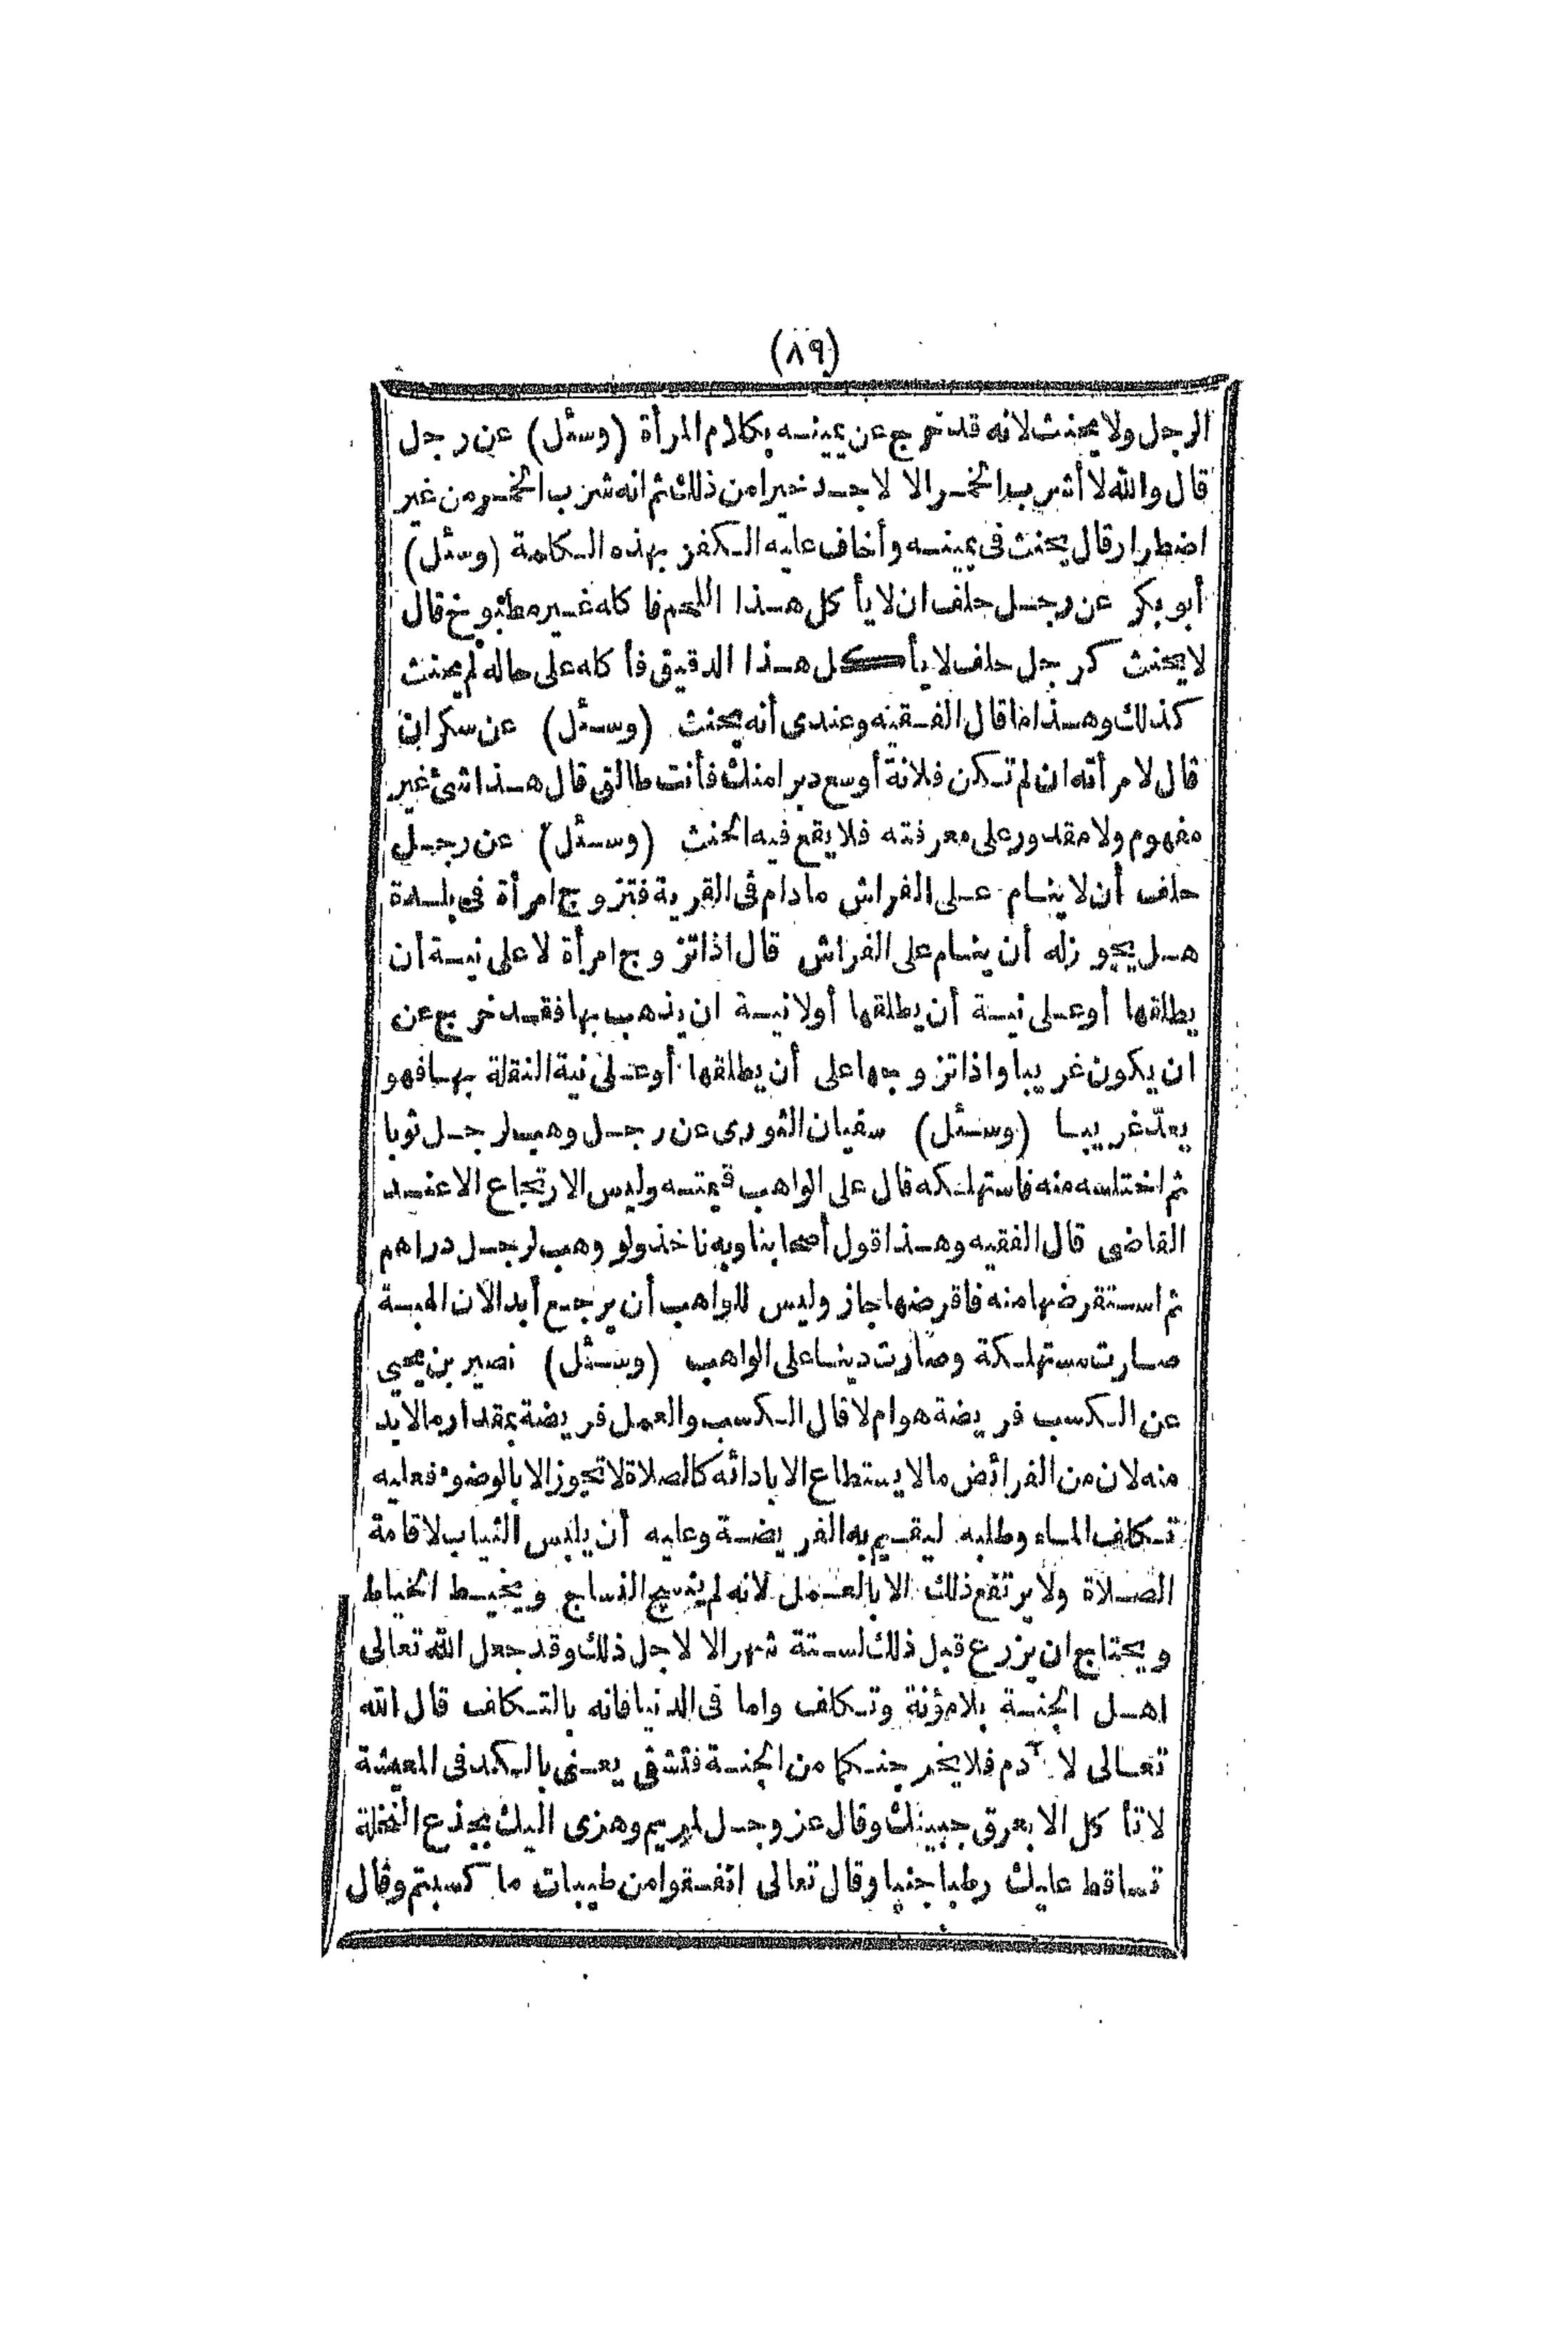 (٨٩)
الرجل ولا يحنث لانه قد خرج عن يمينه بكلام المرأة (وسئل) عن رجل
قال والله لا أشرب الخمر الا لاجد خيرا من ذلك ثم انه شرب الخمر من غير
اضطرار قال يحنث فى يمينه وأخاف عليه الكفر بهذه الكلمة (وسئل)
أبو بكر عن رجل حلف ان لا يأكل هذا اللحم فاكله غير مطبوخ قال
لا يحنث كرجل حلف لا يأكل هذا الدقيق فأكله على حاله لم يحنث
كذلك وهذا ما قال الفقيه وعندى أنه يحنث (وسئل) عن سكران
قال لامرأته ان لم تكن فلانة أوسع دبرا منك فأنت طالق قال هذا شئ غير
مفهوم ولا مقدور على معرفته فلا يقع فيه الحنث (وسئل) عن رجل
حلف أن لا ينام على الفراش مادام فى القرية فتزوج امرأة فى بلدة
هل يجوز له أن ينام على الفراش قال اذا تزوج امرأة لا على نية أن
يطلقها أو على نية أن يطلقها أولا نية ان يذهب بها فقد خرج عن
ان يكون غريبا واذا تزوجها على أن يطلقها أو على نية النقلة بها فهو
يعدّ غريبا (وسئل) سفيان الثورى عن رجل وهب لرجل ثوبا
ثم اختلسه منه فاستهلكه قال على الواهب قيمته وليس الارتجاع الا عند
القاضى قال الفقيه وهذا قول أصحابنا وبه ناخذ ولو وهب لرجل دراهم
ثم استقرضها منه فاقرضها جاز وليس للواهب أن يرجع أبدا لان الهبة
صارت مستهلكة وصارت دينا على الواهب (وسئل) نصير بن يحيى
عن الكسب فريضة هو ام لا قال الكسب والعمل فريضة بمقدار ما لا بد
منه لان من الفرائض ما لا يستطاع الا بادائه كالصلاة لا تجوز الا بالوضوء فعليه
تكلف الماء وطلبه ليقيم به الفريضة وعليه أن يلبس الثياب لاقامة
الصلاة ولا يرتفع ذلك الا بالعمل لانه لم ينسج النساج ويخيط الخياط
ويحتاج ان يزرع قبل ذلك لستة شهر الا لاجل ذلك وقد جعل الله تعالى
اهل الجنة بلا مؤنة وتكلف واما فى الدنيا فانه بالتكلف قال الله
تعالى لآدم فلا يخرجنكما من الجنة فتشقى يعنى بالكد فى المعيشة
لا تأكل الا بعرق جبينك وقال عز وجل لمريم وهزى اليك بجذع النخلة
تساقط عليك رطبا جنيا وقال تعالى انفقوا من طيبات ما كسبتم وقال